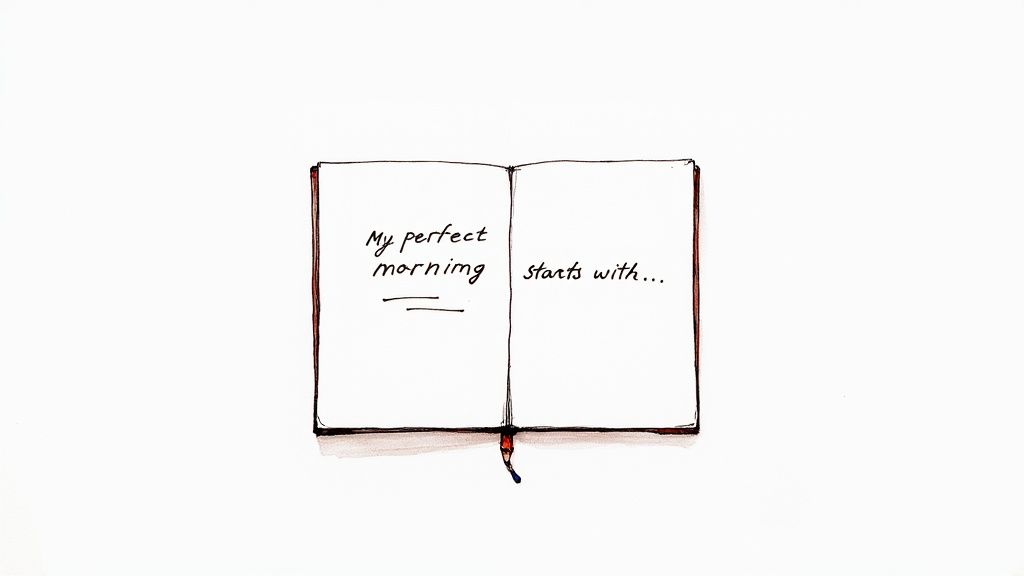 My perfect
morning
starts with...